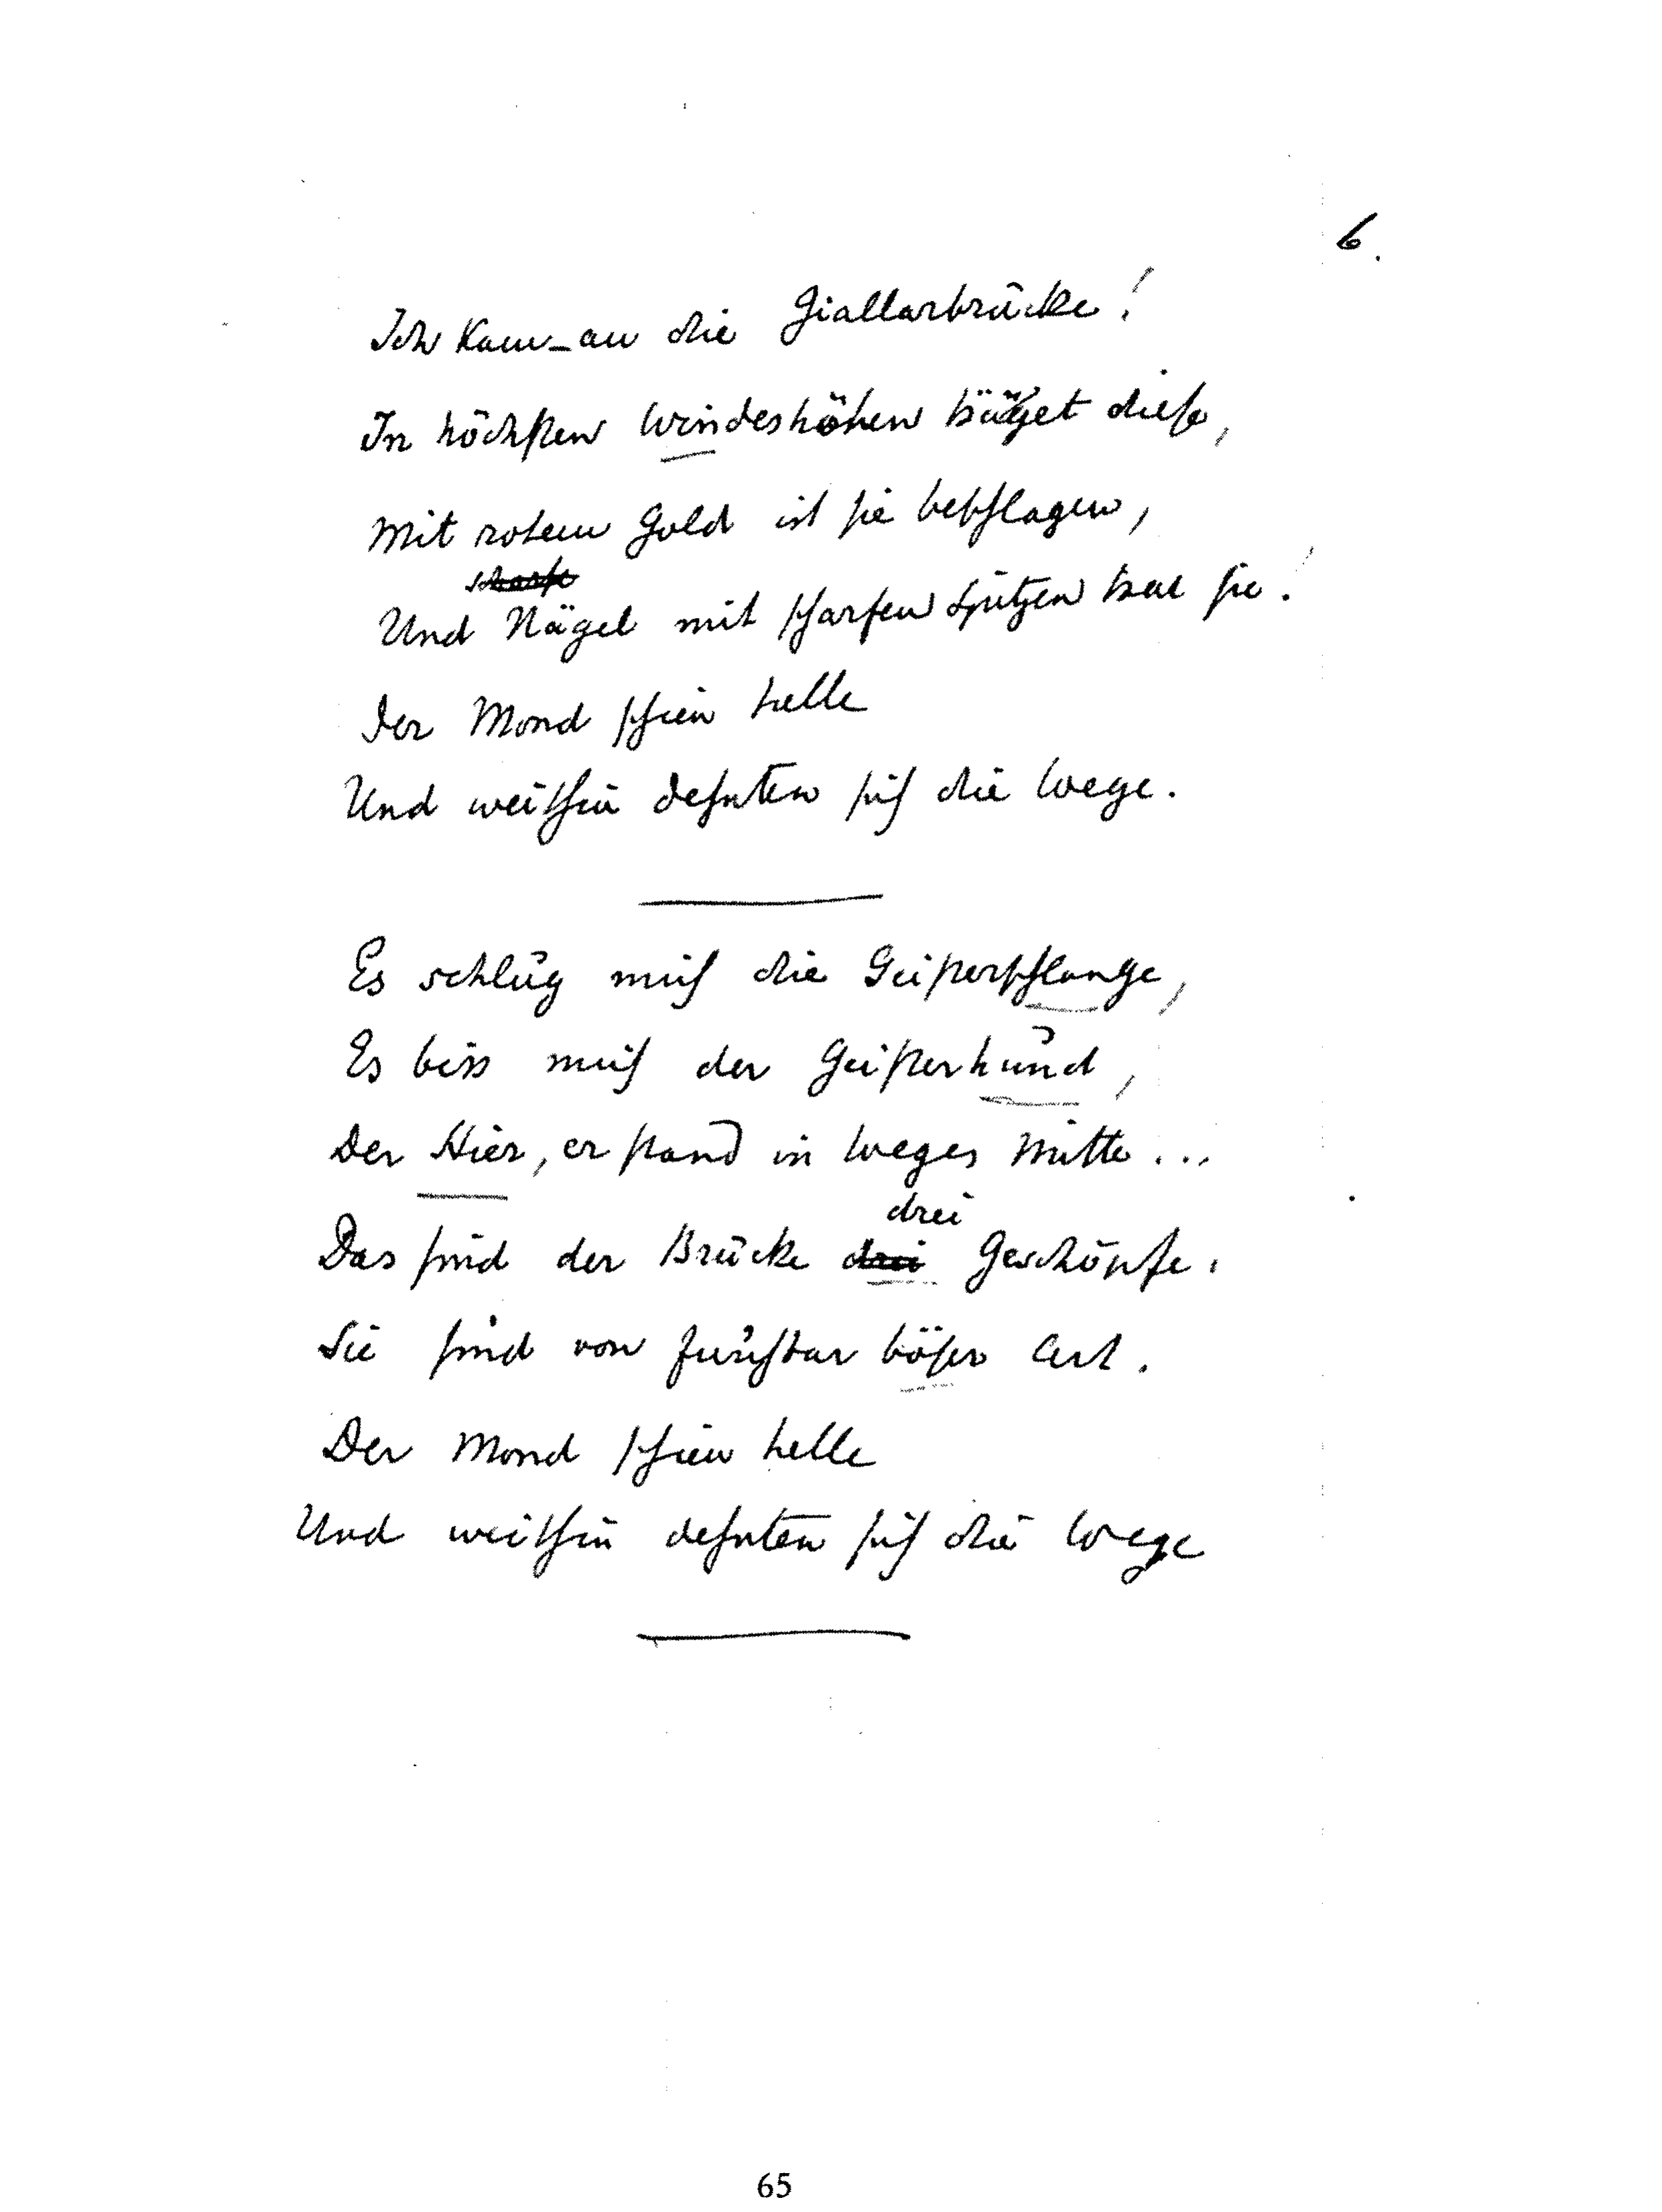 6.
Ich kam an die Giallarbrücke!
In höchsten Windeshöhen hänget diese,
Mit rotem Gold ist sie beschlagen,
scharfe
Und Nägel mit scharfen Spitzen hat sie!
Der Mond schien helle
Und weithin dehnten sich die Wege.
Es schlug mich die Geisterschlange,
Es biss mich der Geisterhund,
Der Stier, er stand in Weges Mitte...
drei
Das sind der Brücke drei Geschöpfe.
Sie sind von furchtbar böser Art.
Der Mond schien helle
Und weithin dehnten sich die Wege
65